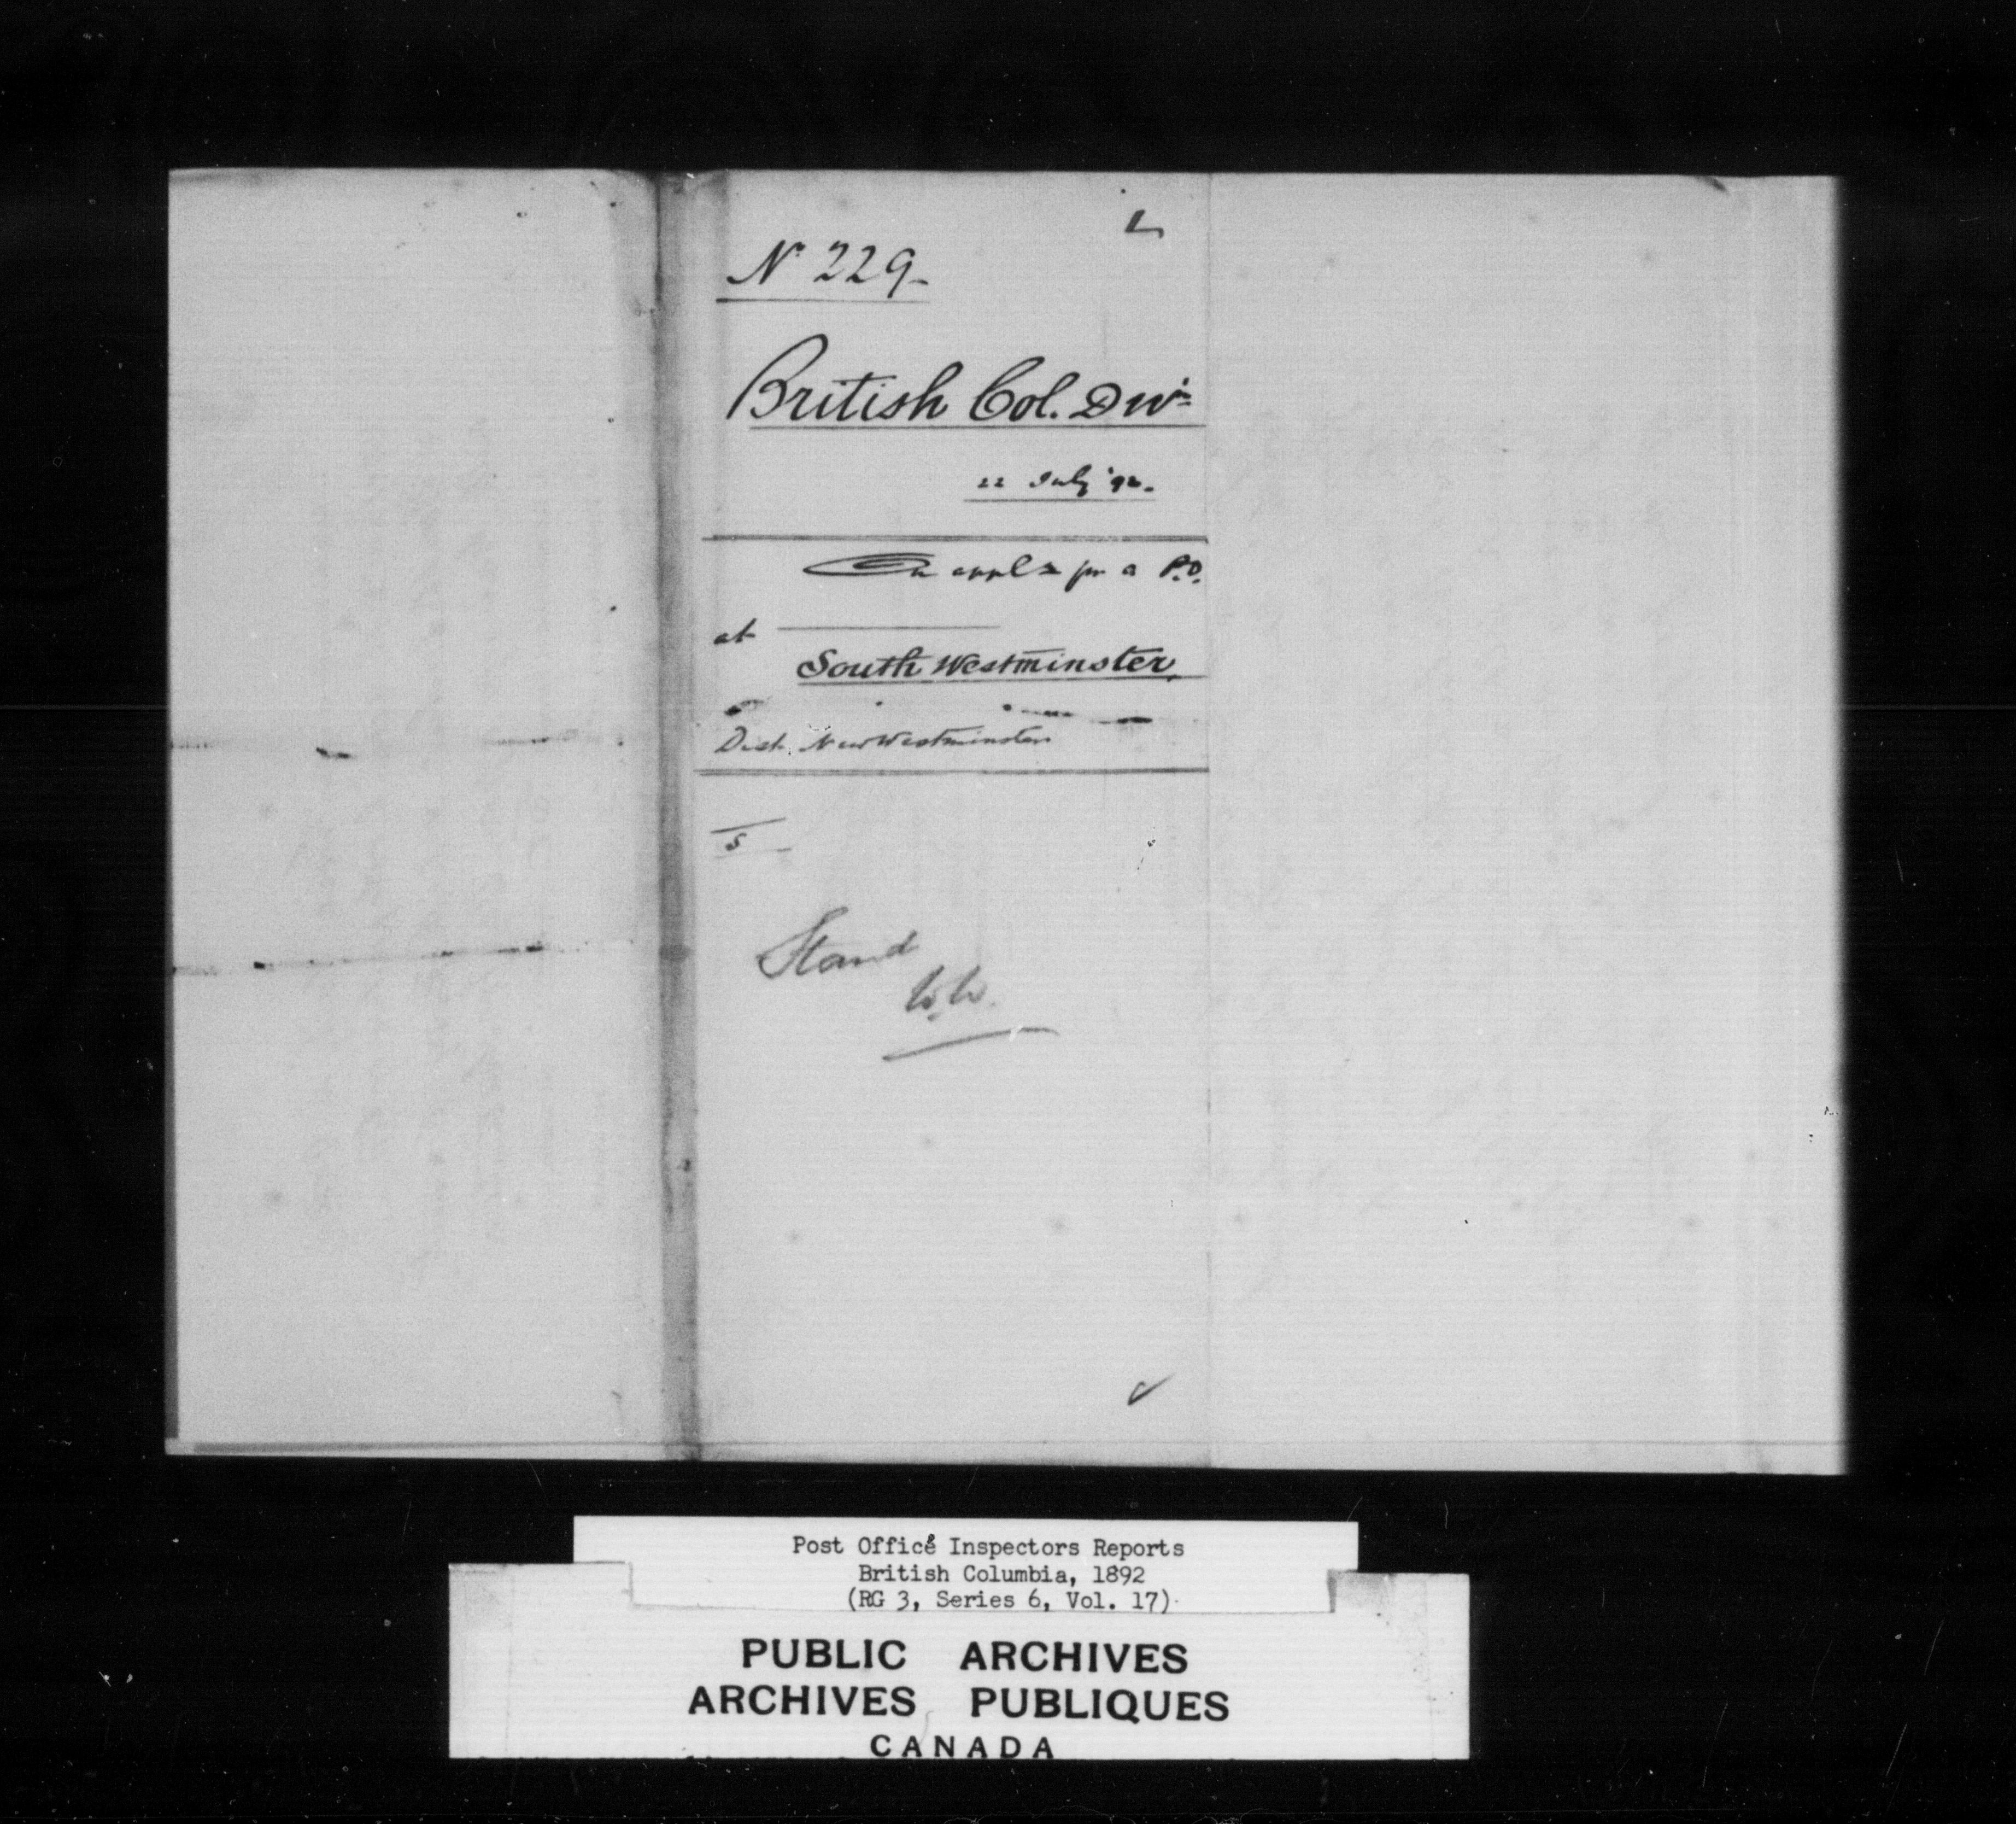 No 229-
British Col. Divn
22 July '92.
On appln for a P.O.
at
South Westminster,
Dist. New Westminster
5
Stand
W.W.
Post Office Inspectors Reports
British Columbia, 1892
(RG 3, Series 6, Vol. 17)
PUBLIC ARCHIVES
ARCHIVES PUBLIQUES
CANADA